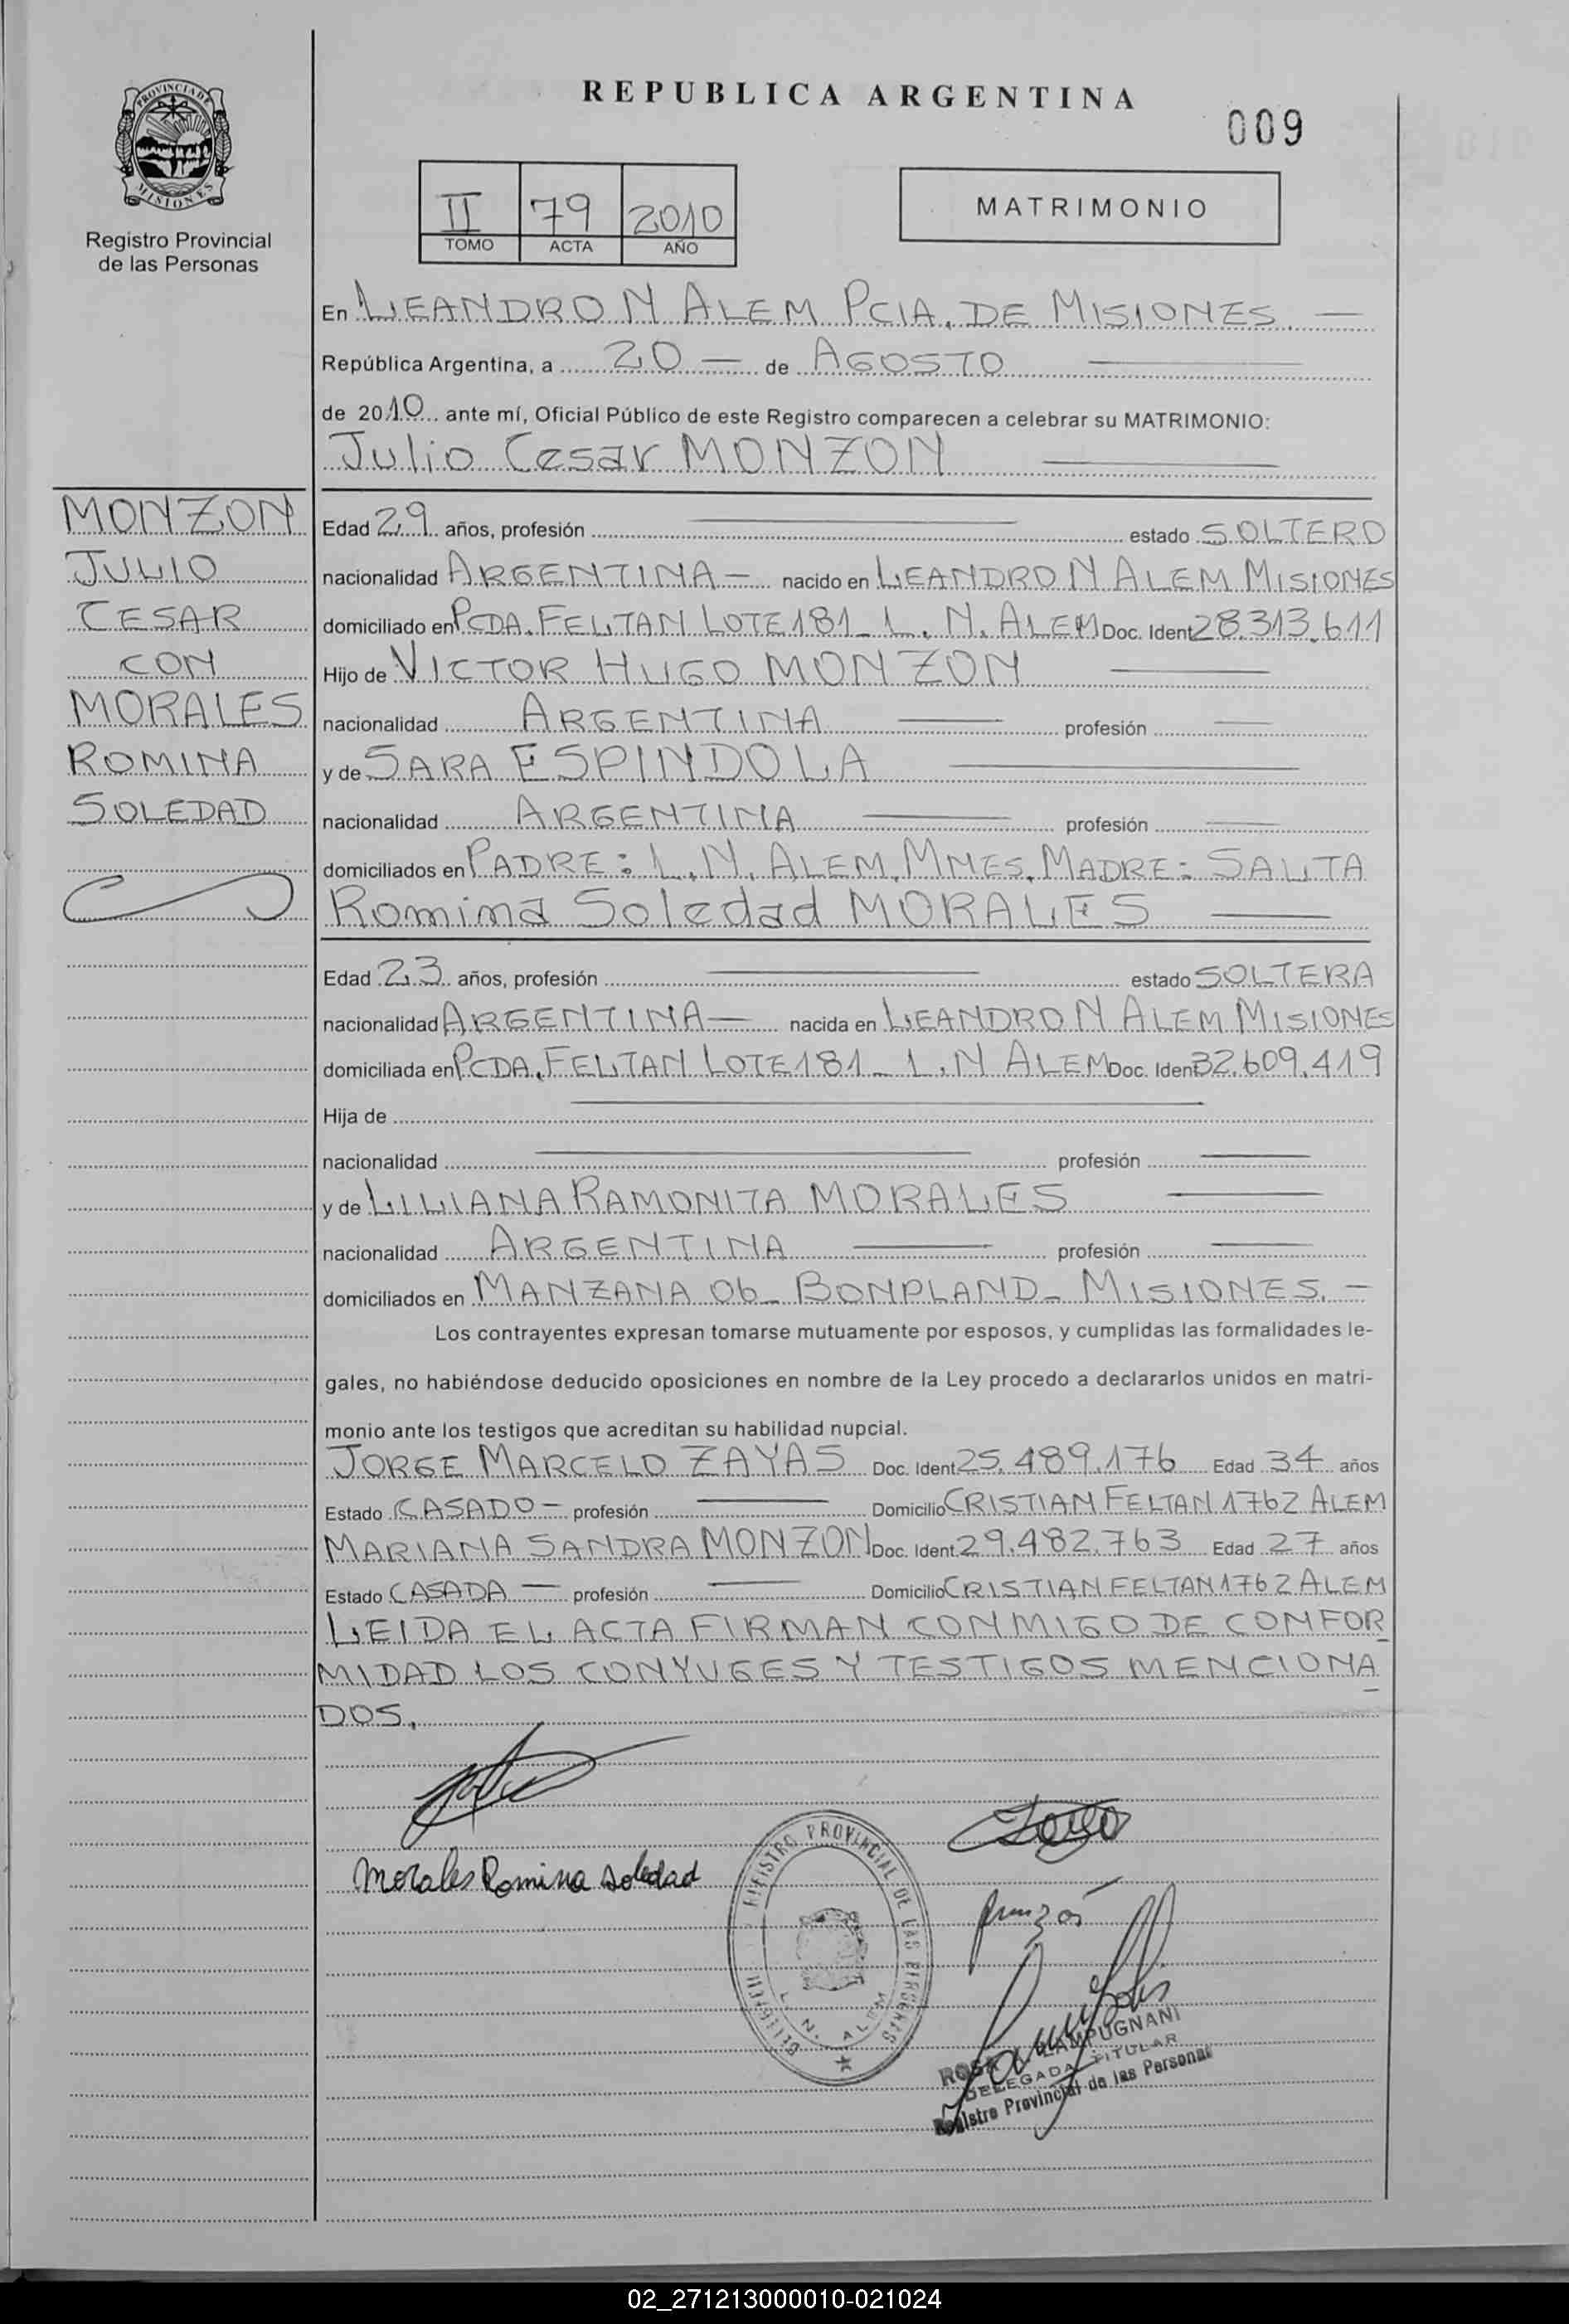 PROVINCIA DE
MISIONES
Registro Provincial
de las Personas
REPUBLICA ARGENTINA
009
II 79 2010
TOMO ACTA AÑO
MATRIMONIO
En LEANDRO N ALEM PCIA. DE MISIONES.
República Argentina, a 20 de AGOSTO
de 2010 ante mí, Oficial Público de este Registro comparecen a celebrar su MATRIMONIO:
Julio Cesar MONZON
MONZON
JULIO
CESAR
CON
MORALES
ROMINA
SOLEDAD
Edad 29 años, profesión estado SOLTERO
nacionalidad ARGENTINA – nacido en LEANDRO N ALEM MISIONES
domiciliado en PCDA. FELTAN LOTE 181 – L. N. ALEM Doc. Ident 28.313.611
Hijo de VICTOR HUGO MONZON
nacionalidad ARGENTINA profesión
y de SARA ESPINDOLA
nacionalidad ARGENTINA profesión
domiciliados en PADRE: L. N. ALEM. MNES. MADRE: SALTA
Romina Soledad MORALES
Edad 23 años, profesión estado SOLTERA
nacionalidad ARGENTINA – nacida en LEANDRO N ALEM MISIONES
domiciliada en PCDA. FELTAN LOTE 181 – L. N ALEM Doc. Ident 32.609.419
Hija de
nacionalidad profesión
y de LILIANA RAMONITA MORALES
nacionalidad ARGENTINA profesión
domiciliados en MANZANA 06 – BONPLAND – MISIONES. –
Los contrayentes expresan tomarse mutuamente por esposos, y cumplidas las formalidades le-
gales, no habiéndose deducido oposiciones en nombre de la Ley procedo a declararlos unidos en matri-
monio ante los testigos que acreditan su habilidad nupcial.
JORGE MARCELO ZAYAS Doc. Ident 25.489.176 Edad 34 años
Estado CASADO – profesión Domicilio CRISTIAN FELTAN 1762 ALEM
MARIANA SANDRA MONZON Doc. Ident. 29.482.763 Edad 27 años
Estado CASADA – profesión Domicilio CRISTIAN FELTAN 1762 ALEM
LEIDA EL ACTA FIRMAN CONMIGO DE CONFOR
MIDAD LOS CONYUGES Y TESTIGOS MENCIONA
DOS.
Morales Romina Soledad
REGISTRO PROVINCIAL DE LAS PERSONAS
L. N. ALEM
LAMPUGNANI
DELEGADA TITULAR
Registro Provincial de las Personas
02_271213000010-021024